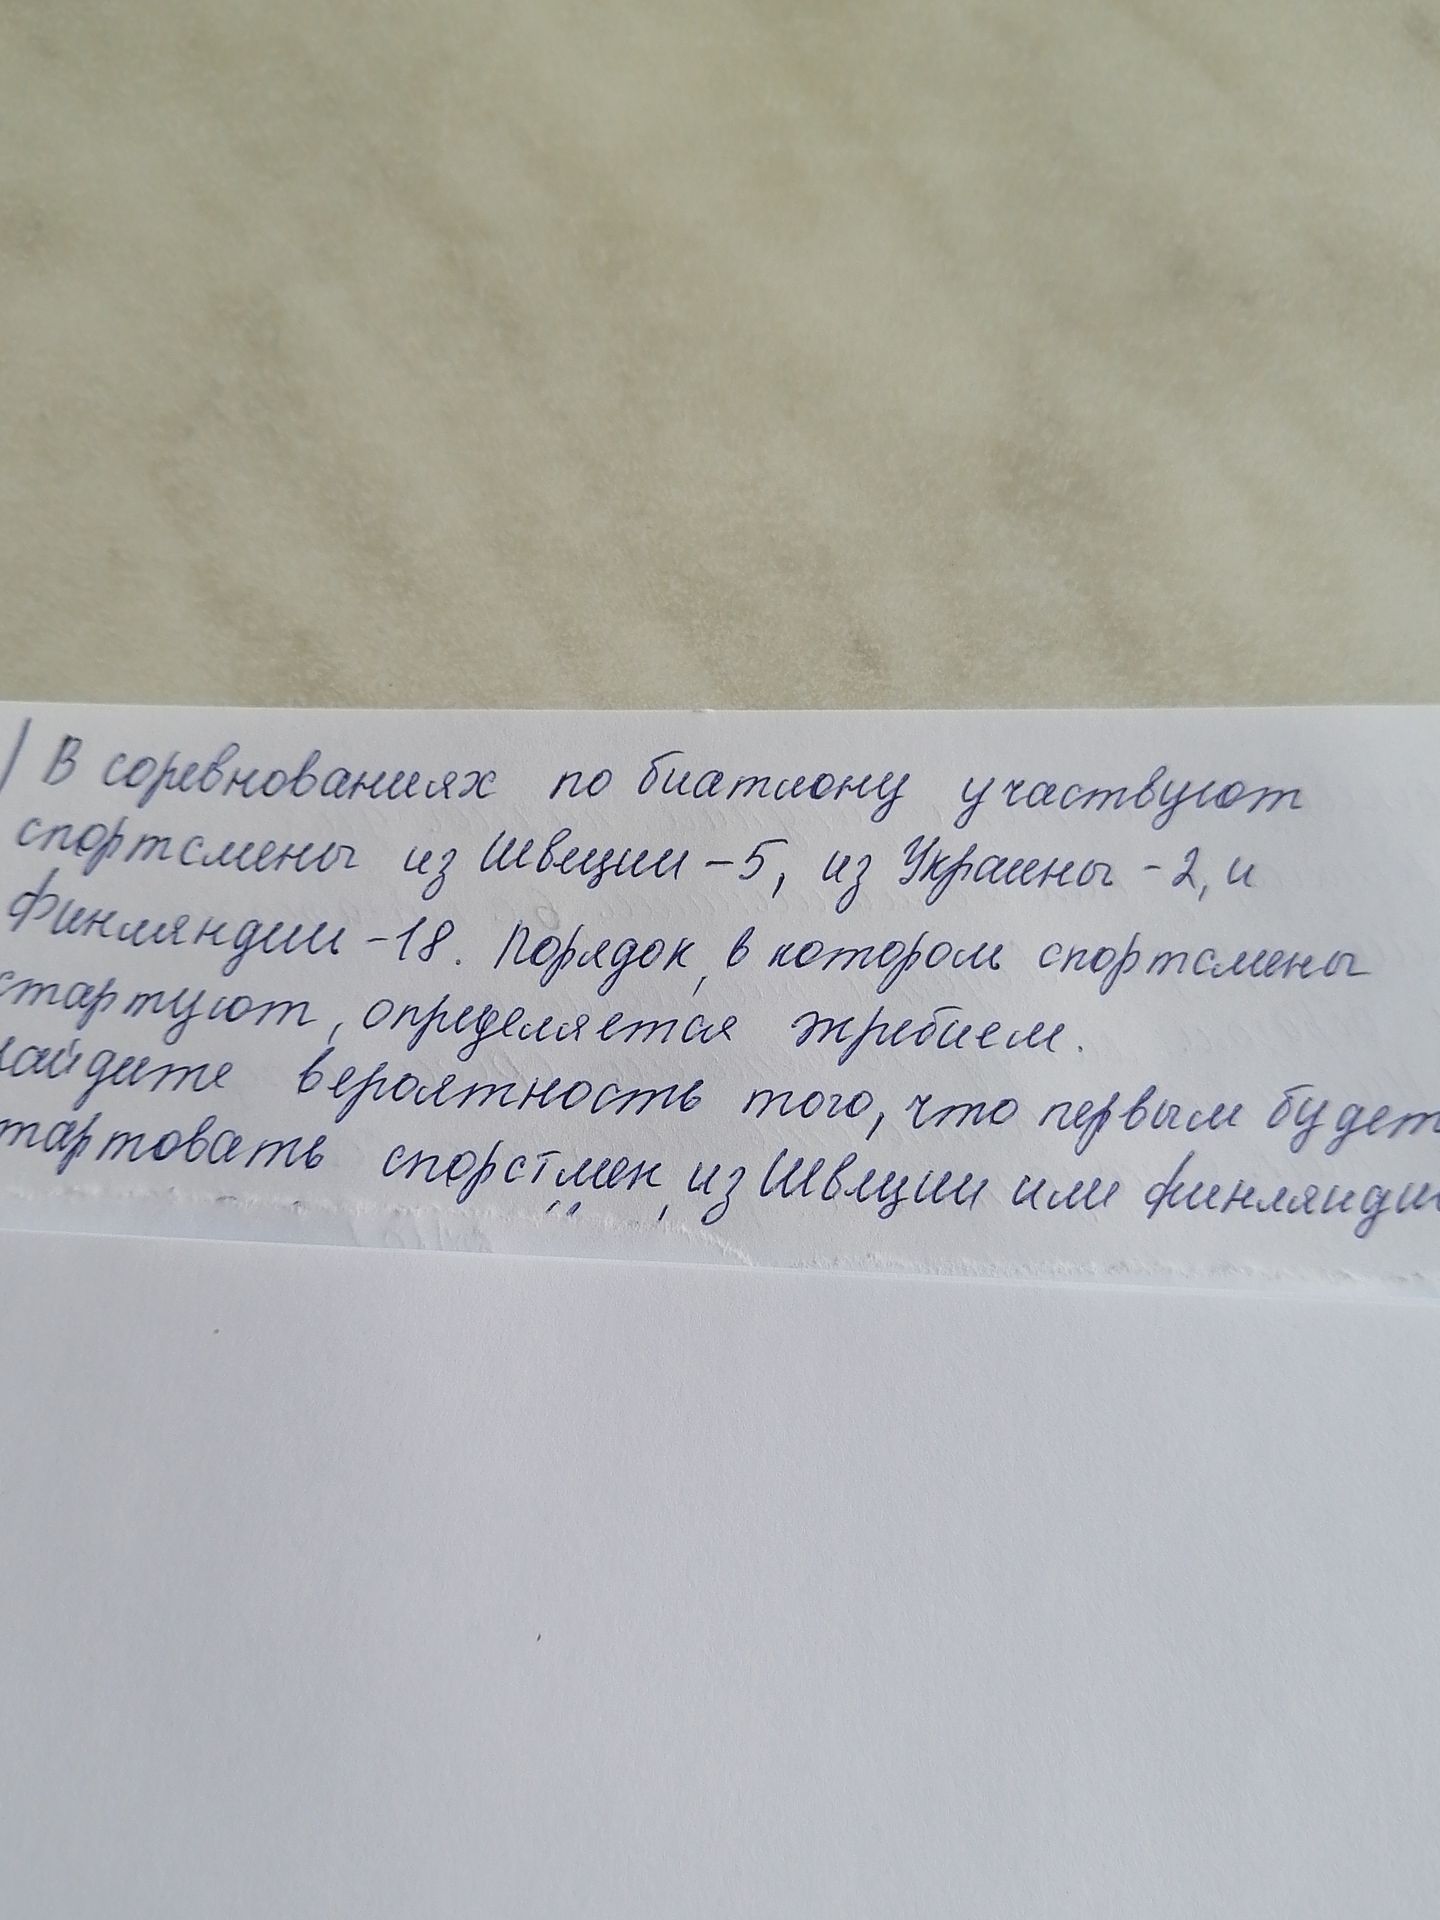 В соревнованиях по биатлону участвуют
спортсмены из Швеции - 5, из Украины - 2, и
Финляндии - 18. Порядок, в котором спортсмены
стартуют, определяется жребием.
найдите вероятность того, что первым будет
тартовать спорстмен, из Швеции или Финляндии